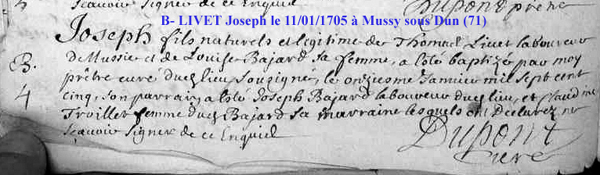 Sçauoir Signer de ce Enquis
Dupont prêtre
B- LIVET Joseph le 11/01/1705 à Mussy sous Dun (71)
Joseph fils naturels et legitime de Thomas Liuet laboureur
B. de Mussie et de Louise Bajard sa femme, a esté baptizé par moy
prêtre curé dud lieu, soussigné, le onziesme Januier mil sept cent
4 cinq, son parrain a esté Joseph Bajard laboureur dud lieu, et
Troillet femme dud Bajard sa marraine lesquels ont declarez ne
Sçauoir signer de ce Enquis
Dupont
curé